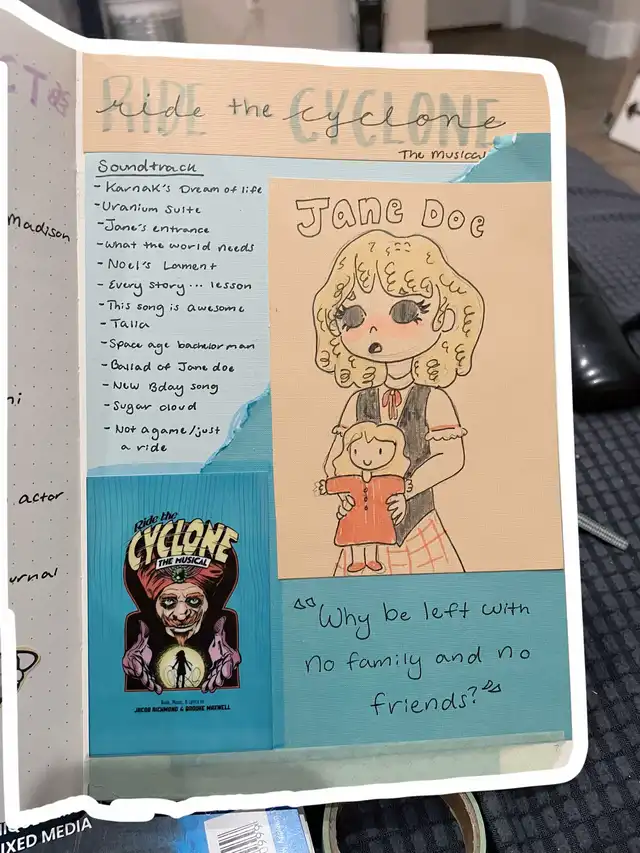 RIDE the CYCLONE
ride the cyclone
The Musical
Soundtrack
- Karnak's Dream of life
- Uranium Suite
- Jane's entrance
- What the world needs
- Noel's Lament
- Every story... lesson
- This song is awesome
- Talia
- Space age bachelor man
- Ballad of Jane doe
- New Bday song
- Sugar cloud
- Not a game/just
a ride
Jane Doe
Ride the
CYCLONE
THE MUSICAL
Book, Music, & Lyrics by
JACOB RICHMOND & BROOKE MAXWELL
"Why be left with
no family and no
friends?"
madison
actor
urnal
IXED MEDIA